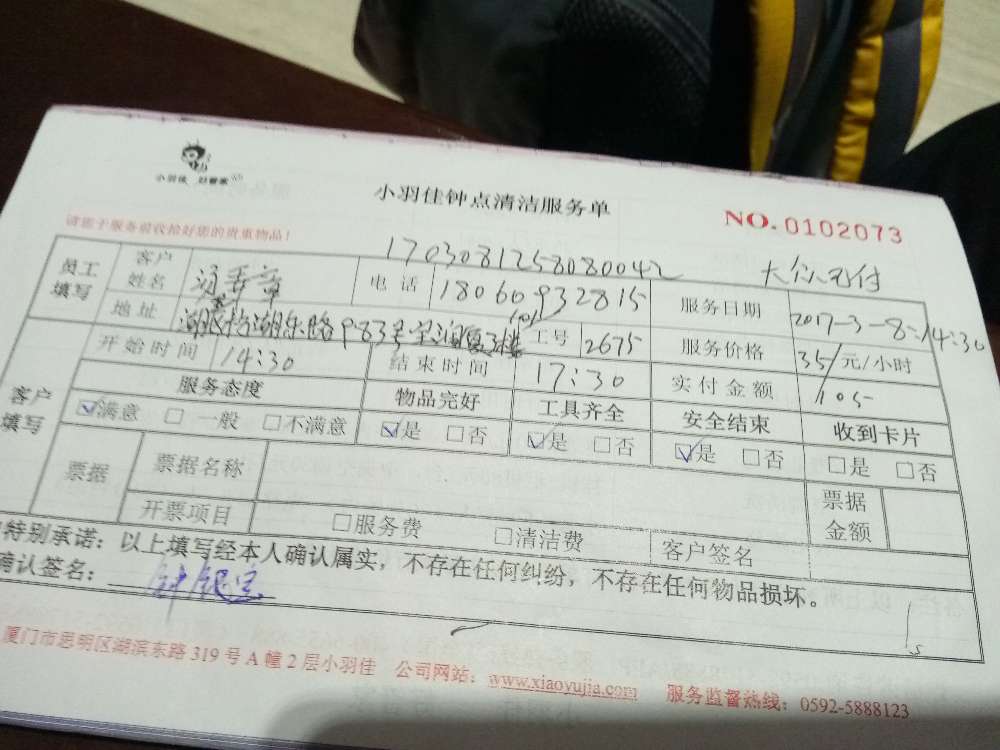 小羽佳 好管家
小羽佳钟点清洁服务单
NO.0102073
请您于服务前收拾好您的贵重物品!
1703081258080042
员工填写 客户姓名 电话 18060932815 服务日期 2017-3-8 14:30
地址 983 101 工号 2675 服务价格 35/元/小时
客户填写 开始时间 14:30 结束时间 17:30 实付金额 105
服务态度 物品完好 工具齐全 安全结束 收到卡片
☑满意 □一般 □不满意 ☑是 □否 ☑是 □否 ☑是 □否 □是 □否
票据 票据名称 票据金额
开票项目 □服务费 □清洁费 客户签名
特别承诺:以上填写经本人确认属实,不存在任何纠纷,不存在任何物品损坏。
确认签名:
厦门市思明区湖滨东路319号A幢2层小羽佳 公司网站:www.xiaoyujia.com 服务监督热线:0592-5888123